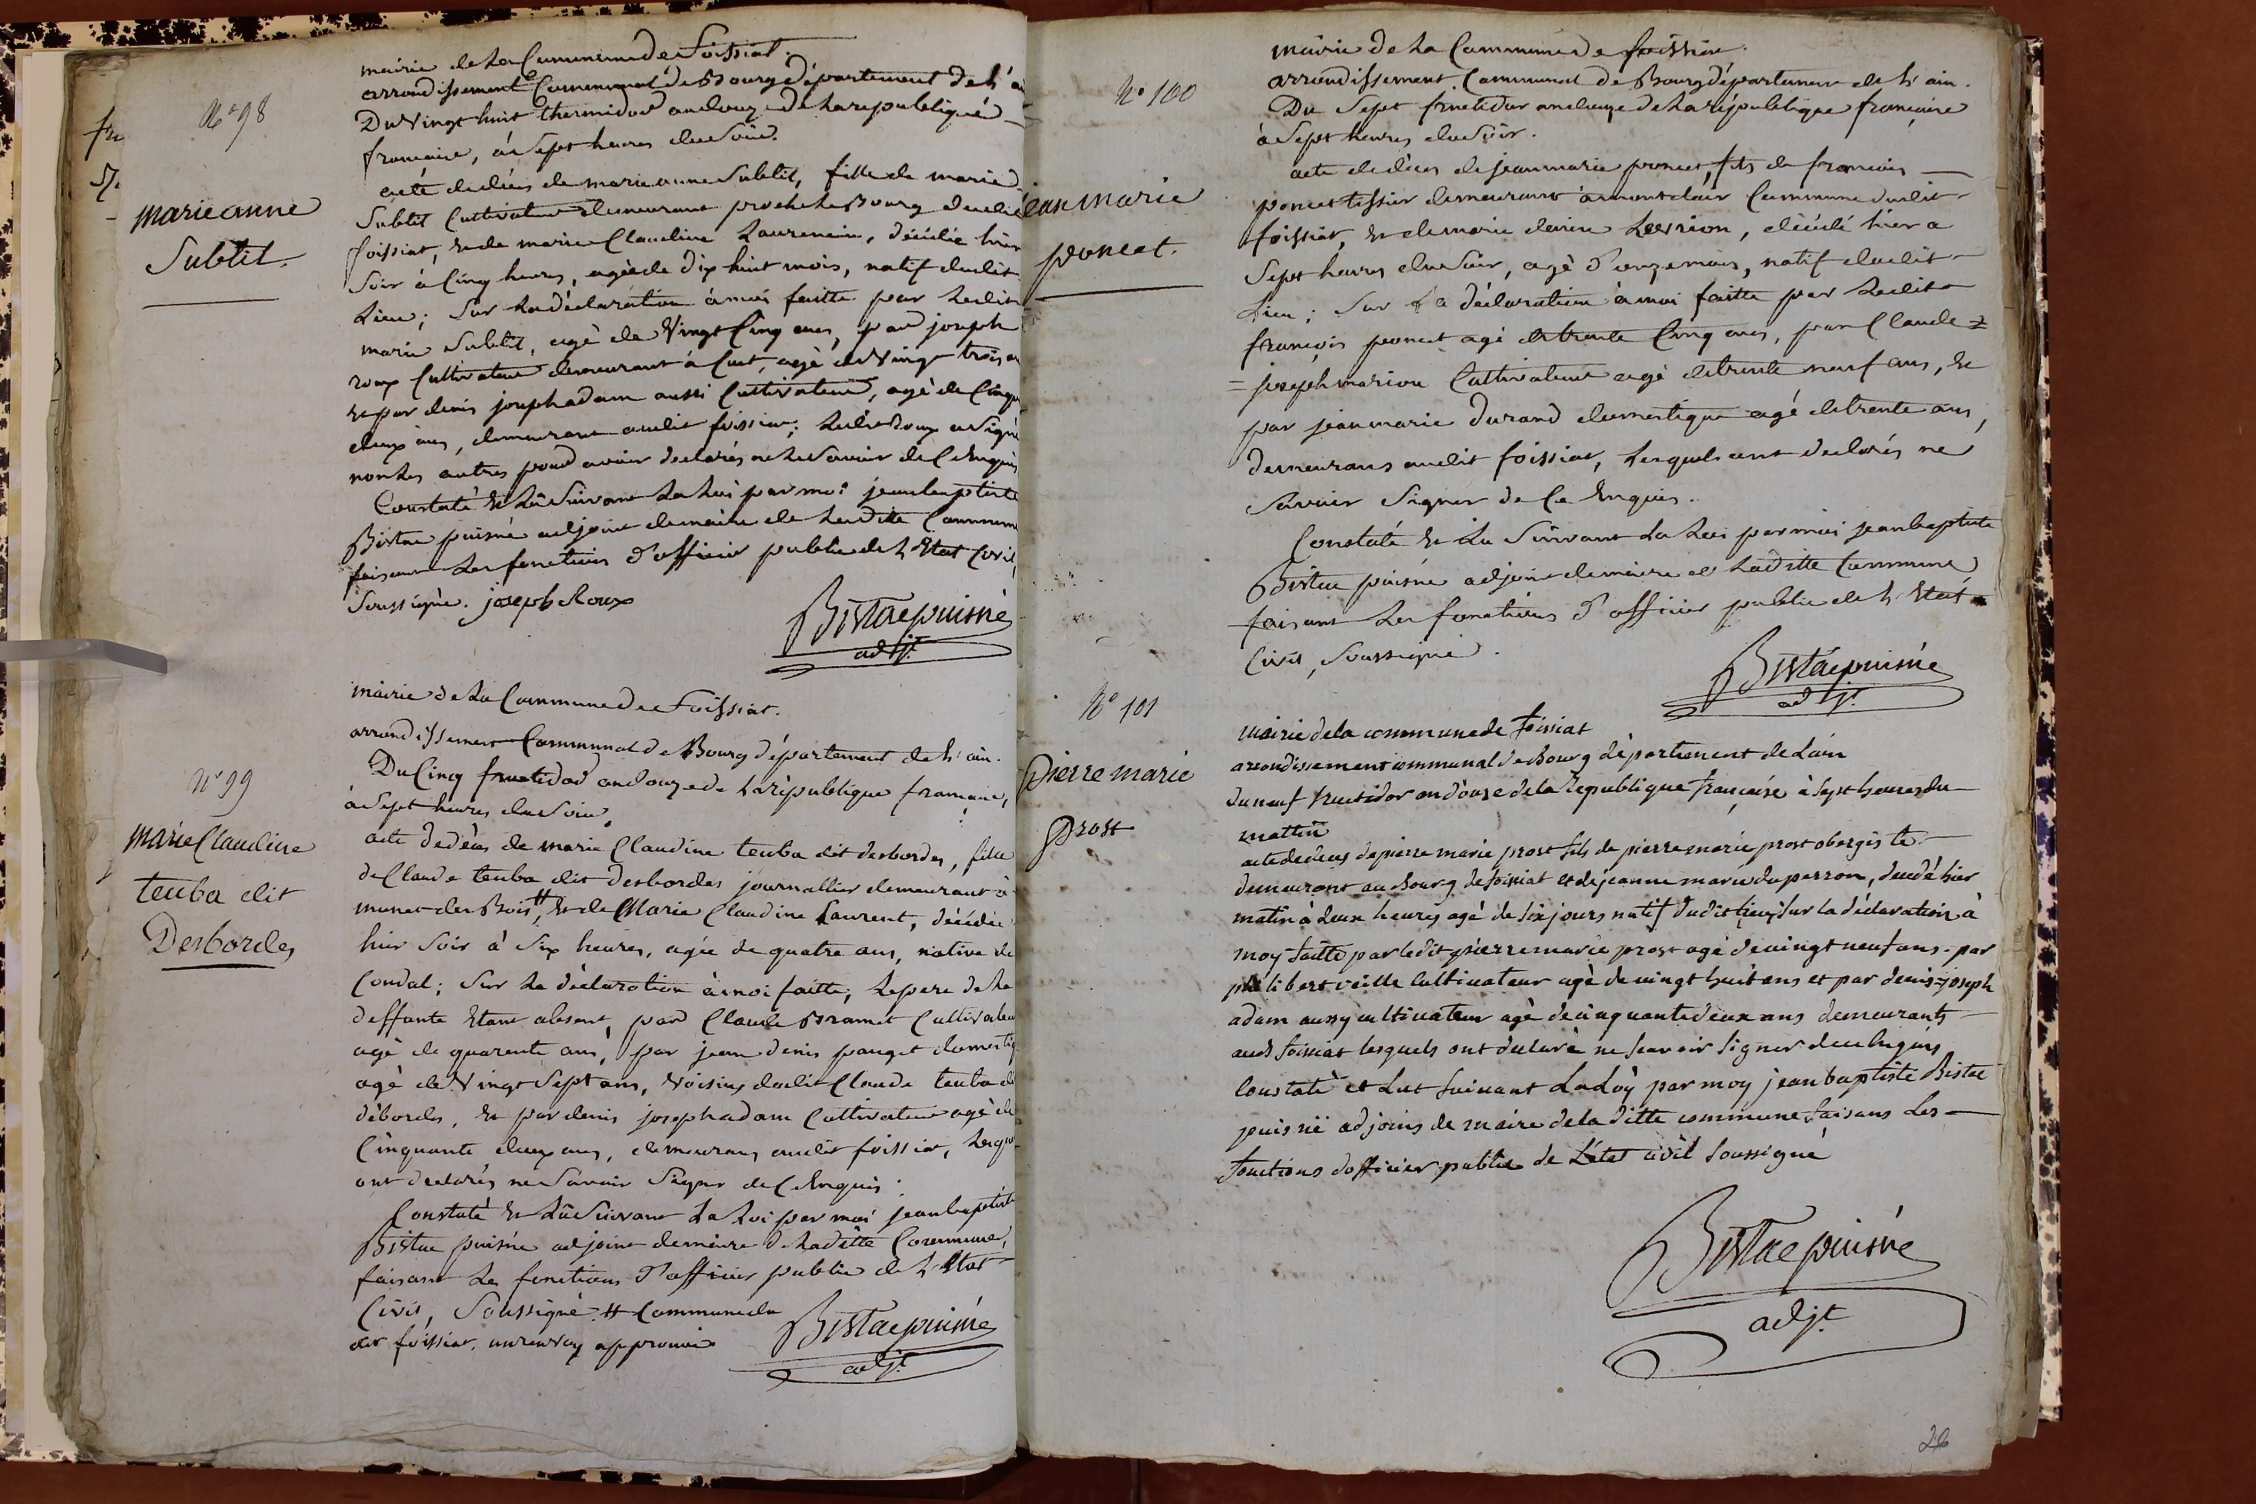 N° 98
marie anne
Subtil.
mairie de La Commune de Foissiat.
arrondissement Communal de Bourg département de L'ain
Du Vingt huit thermidor an douze de La république
francaise, à Sept heures du Soir.
acte de décès de marie anne Subtil, fille de marie
Subtil Cultivateur demeurant proche Le Bourg dudit
foissiat, Et de marie Claudine Laurencin, décédée hier
Soir à Cinq heures, agée de dix huit mois, natif dudit
Lieu; Sur La déclaration à moi faitte par Ledit
marie Subtil, agé de Vingt Cinq ans, par joseph
roux Cultivateur demeurant à Cuet, agé de Vingt trois ans
Et par denis joseph adam aussi Cultivateur, agé de Cinquante
deux ans, demeurant audit foissiat; Ledit Roux a Signé
non Les autres pour avoir déclarés ne Le Savoir de Ce Enquis
Constaté Et Lû Suivant La Loi par moi jean baptiste
Bistac puisné adjoint de maire de Laditte Commune
faisant Les fonctions d'officier public de L'Etat Civil,
Soussigné. joseph Roux
Bistac puisné
adjt.
N° 99
Marie Claudine
teuba dit
Desbordes
mairie de La Commune de Foissiat.
arrondissement Communal de Bourg département de L'ain.
Du Cinq fructidor an douze de La république francaise,
à Sept heures du Soir.
acte de décès de marie Claudine teuba dit desbordes, fille
de Claude teuba dit Desbordes journallier demeurant à
munet des Bois #, Et de Marie Claudine Laurent, décédée
hier Soir à Six heures, agée de quatre ans, native de
Condal; Sur La déclaration à moi faitte, Le pere de La
deffunte Etant absent, par Claude Bramet Cultivateur
agé de quarente ans, par jean denis pauget domestique
agé de Vingt Sept ans, Voisins dudit Claude teuba dit
débordes, Et par denis joseph adam Cultivateur agé de
Cinquante deux ans, demeurans audit foissiat, Lesquels
ont déclarés ne Savoir Signer de Ce Enquis.
Constaté Et Lû Suivant La Loi par moi jean baptiste
Bistac puisné adjoint de maire de Laditte Commune,
faisant Les fonctions d'officier public de L'Etat
Civil, Soussigné. # Commune du
dit foissiat, un renvoy approuvé
Bistac puisné
adjt.
N° 100
jean marie
poncet.
mairie de La Commune de foissiat.
arrondissement Communal de Bourg département de L'ain.
Du Sept fructidor an douze de La république francaise
à Sept heures du Soir.
acte de décès de jean marie poncet, fils de francois
poncet tessier demeurant à montclair Commune dudit
foissiat, Et de marie denise Loerion, décédé hier a
Sept heures du Soir, agé d'onze mois, natif dudit
Lieu; Sur La déclaration à moi faitte par Ledit
françois poncet agé de trente Cinq ans, par Claude =
= joseph marion Cultivateur agé de trente neuf ans, Et
par jean marie durand domestique agé de trente ans,
demeurans audit foissiat, Lesquels ont déclarés ne
Savoir Signer de Ce Enquis.
Constaté Et Lu Suivant La Loi par moi jean baptiste
Bistac puisné adjoint de maire de Laditte Commune
faisant Les fonctions d'officier public de L'Etat
Civil, Soussigné.
Bistac puisné
adjt.
N° 101
pierre marie
prost
mairie de la commune de foissiat
arrondissement communal de Bourg département de Lain
du neuf fructidor an douze de la République francaise à sept heures du
mattin
acte de déces de pierre marie prost fils de pierre marie prost obergiste
demeurant au Bourg de foissiat et de jeanne marie duperron, décédé hier
matin à deux heures agé de six jours natif dudit lieu, sur la déclaration à
moy faitte par le dit pierre marie prost agé de vingt neuf ans. par
philibert veille cultivateur agé de vingt huit ans et par denis=joseph
adam aussy cultivateur agé de cinquante deux ans demeurants
aud. foissiat lesquels ont declaré ne scavoir signer de ce enquis
Constaté et Lut suivant La Loÿ par moy jean baptiste Bistac
puisné adjoins de maire de la ditte commune faisans Les
fonctions dofficier public de L'état civil soussigné
Bistac puisné
adjt.
26